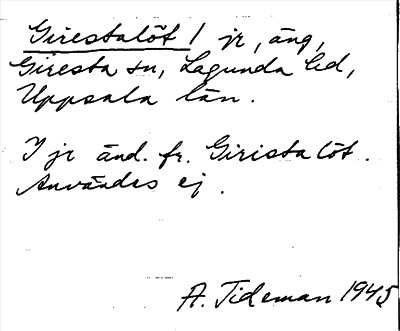 Girestalöt / jr, äng,
Giresta sn, Lagunda hd,
Uppsala län.
I jr änd. fr. Giristalöt.
Användes ej.
A. Tideman 1945